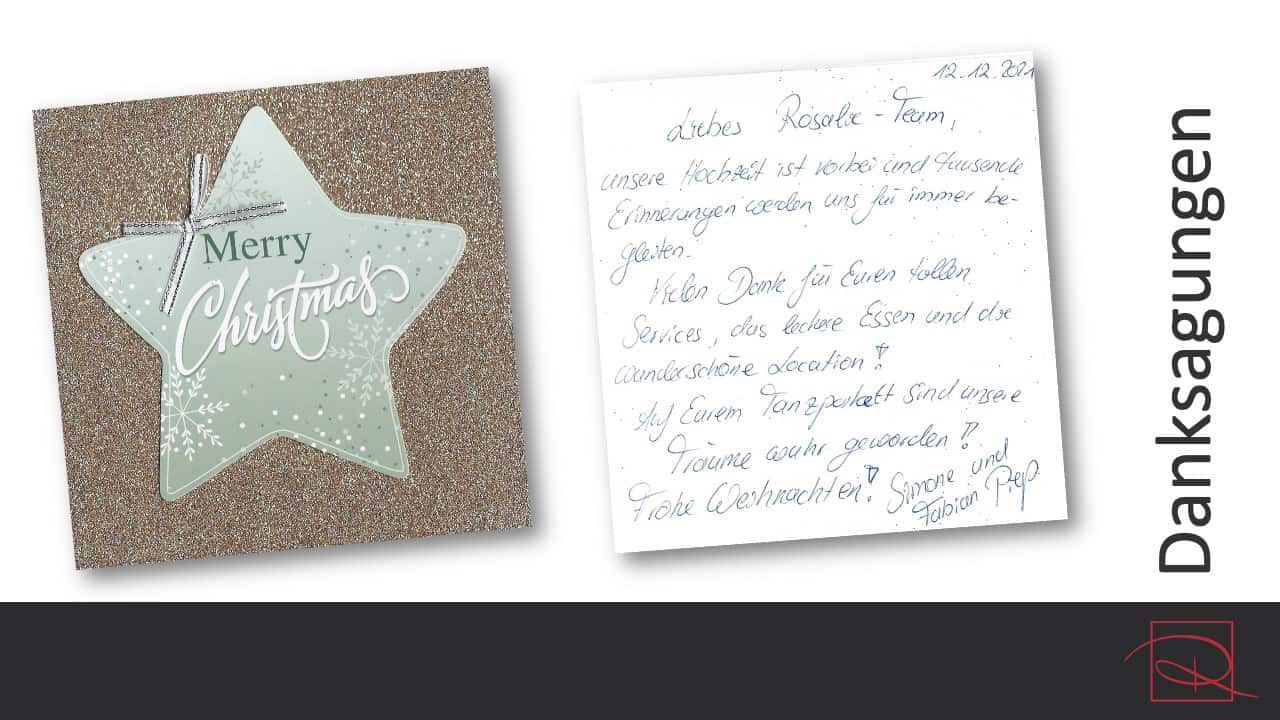 Merry
Christmas
12.12.2021
Liebes Rosalie-Team,
unsere Hochzeit ist vorbei und tausende
Erinnerungen werden uns für immer be-
gleiten.
Vielen Dank für Euren tollen
Services, das leckere Essen und die
wunderschöne Location!
Auf Eurem Tanzparkett sind unsere
Träume wahr geworden!
Frohe Weihnachten! Simone und
Fabian
Danksagungen